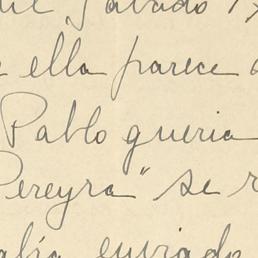 Sábado 1
ella parece
Pablo queria
Pereyra" se
enviado